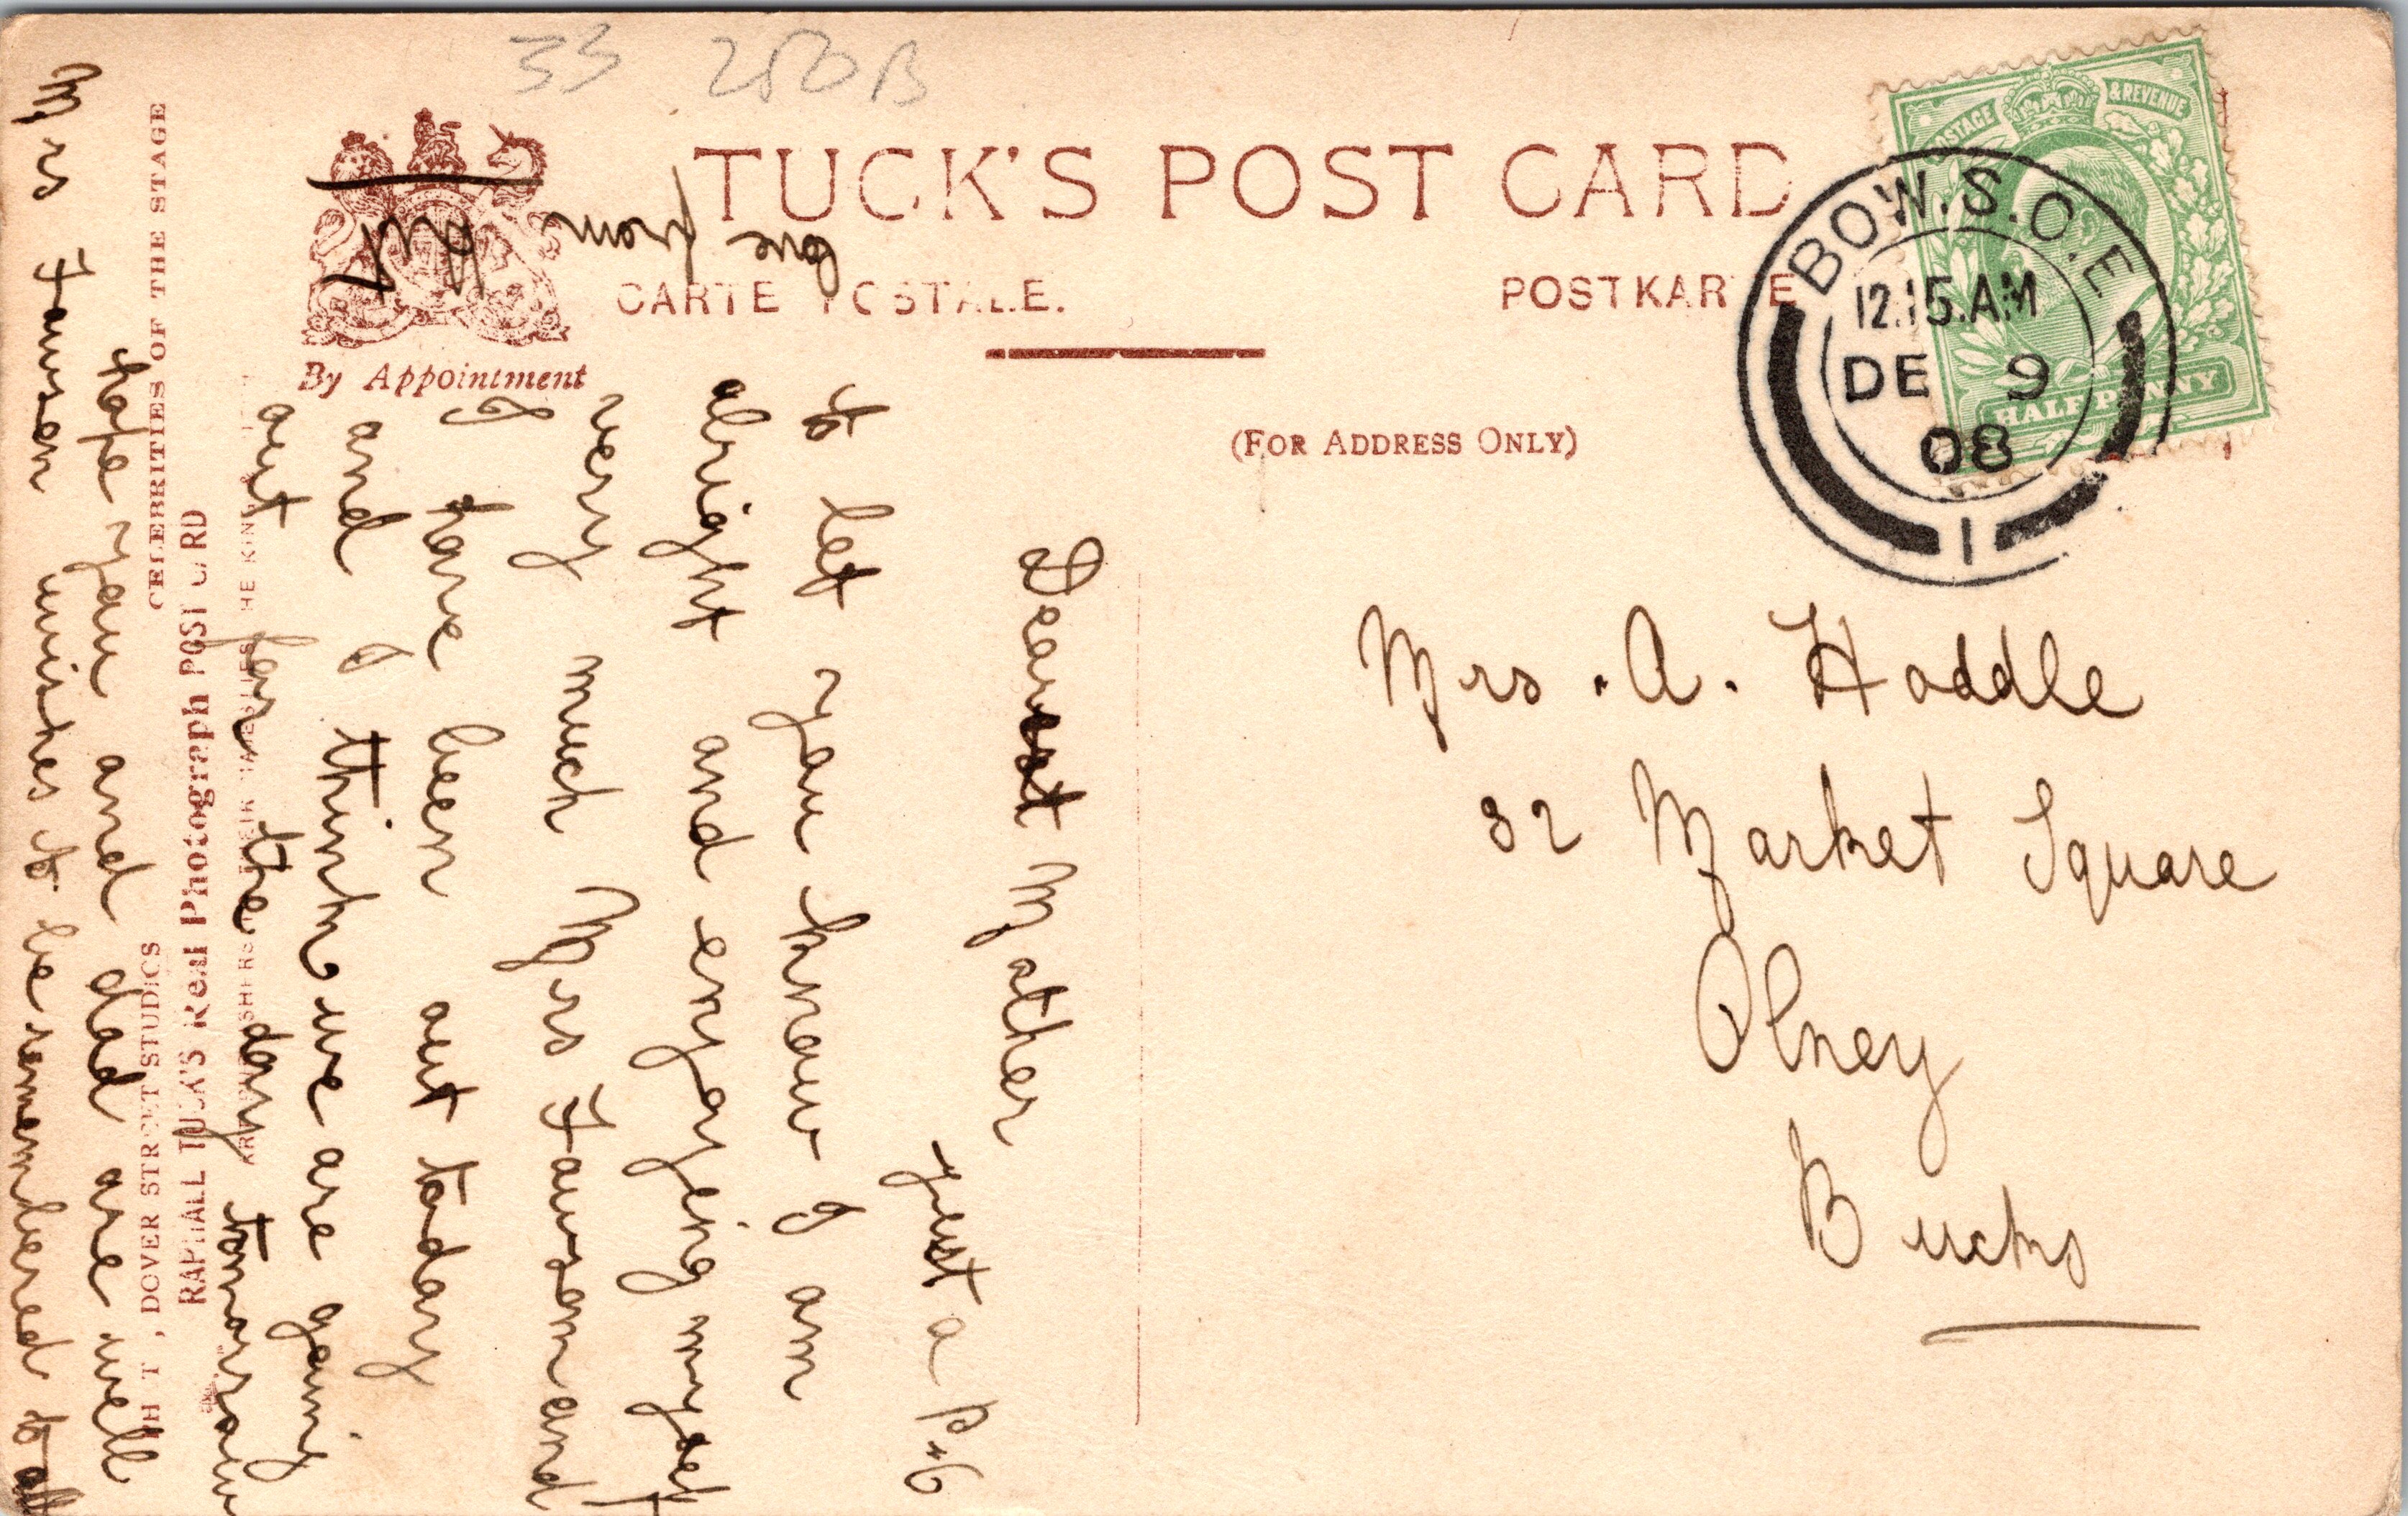 33 250B
TUCK'S POST CARD
CARTE POSTALE.
POSTKARTE
By Appointment
(FOR ADDRESS ONLY)
POSTAGE & REVENUE
HALFPENNY
BOW.S.O.E
12.15.AM
DE 9
08
1
Mrs. A. Hoddle
32 Market Square
Olney
Bucks
Dearest Mother
Just a P.C
to let you know I am
alright and enjoying myself
very much Mrs Fawson and
I have been out today
and I think we are going
out for the day tomorrow
Hope you and dad are well
Mrs Fawson wishes to be remembered to all
love from
CELEBRITIES OF THE STAGE
DOVER STREET STUDIOS
RAPHAEL TUCK'S Real Photograph POST CARD